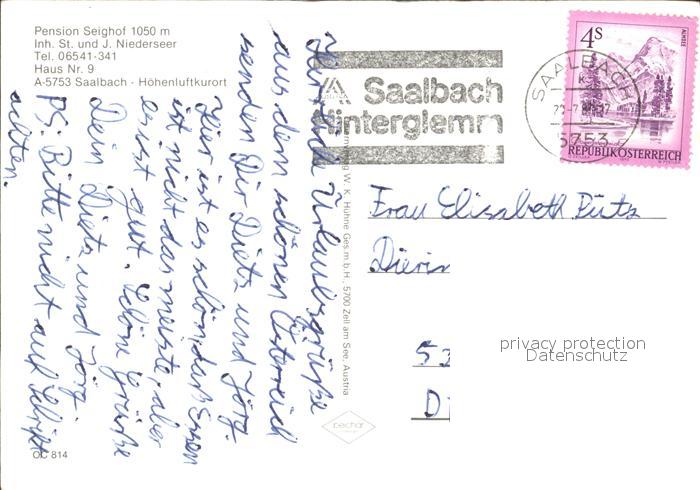 Pension Seighof 1050 m
Inh. St. und J. Niederseer
Tel. 06541-341
Haus Nr. 9
A-5753 Saalbach - Höhenluftkurort
Saalbach
Hinterglemm
SAALBACH
5753
4S
ALMSEE
REPUBLIK ÖSTERREICH
Herzliche Urlaubsgrüße
aus dem schönen Österreich
senden Dir Dietz und Jörg.
Hier ist es schön, daß Essen
ist nicht das meiste, aber
es ist gut. Schöne Grüße
Dein Dietz und Jörg.
PS: Bitte nicht auf Schrift
achten.
W. K. Huhne Ges.m.b.H., 5700 Zell am See, Austria
Frau Elisabeth Pütz
53
D
privacy protection
Datenschutz
OC 814